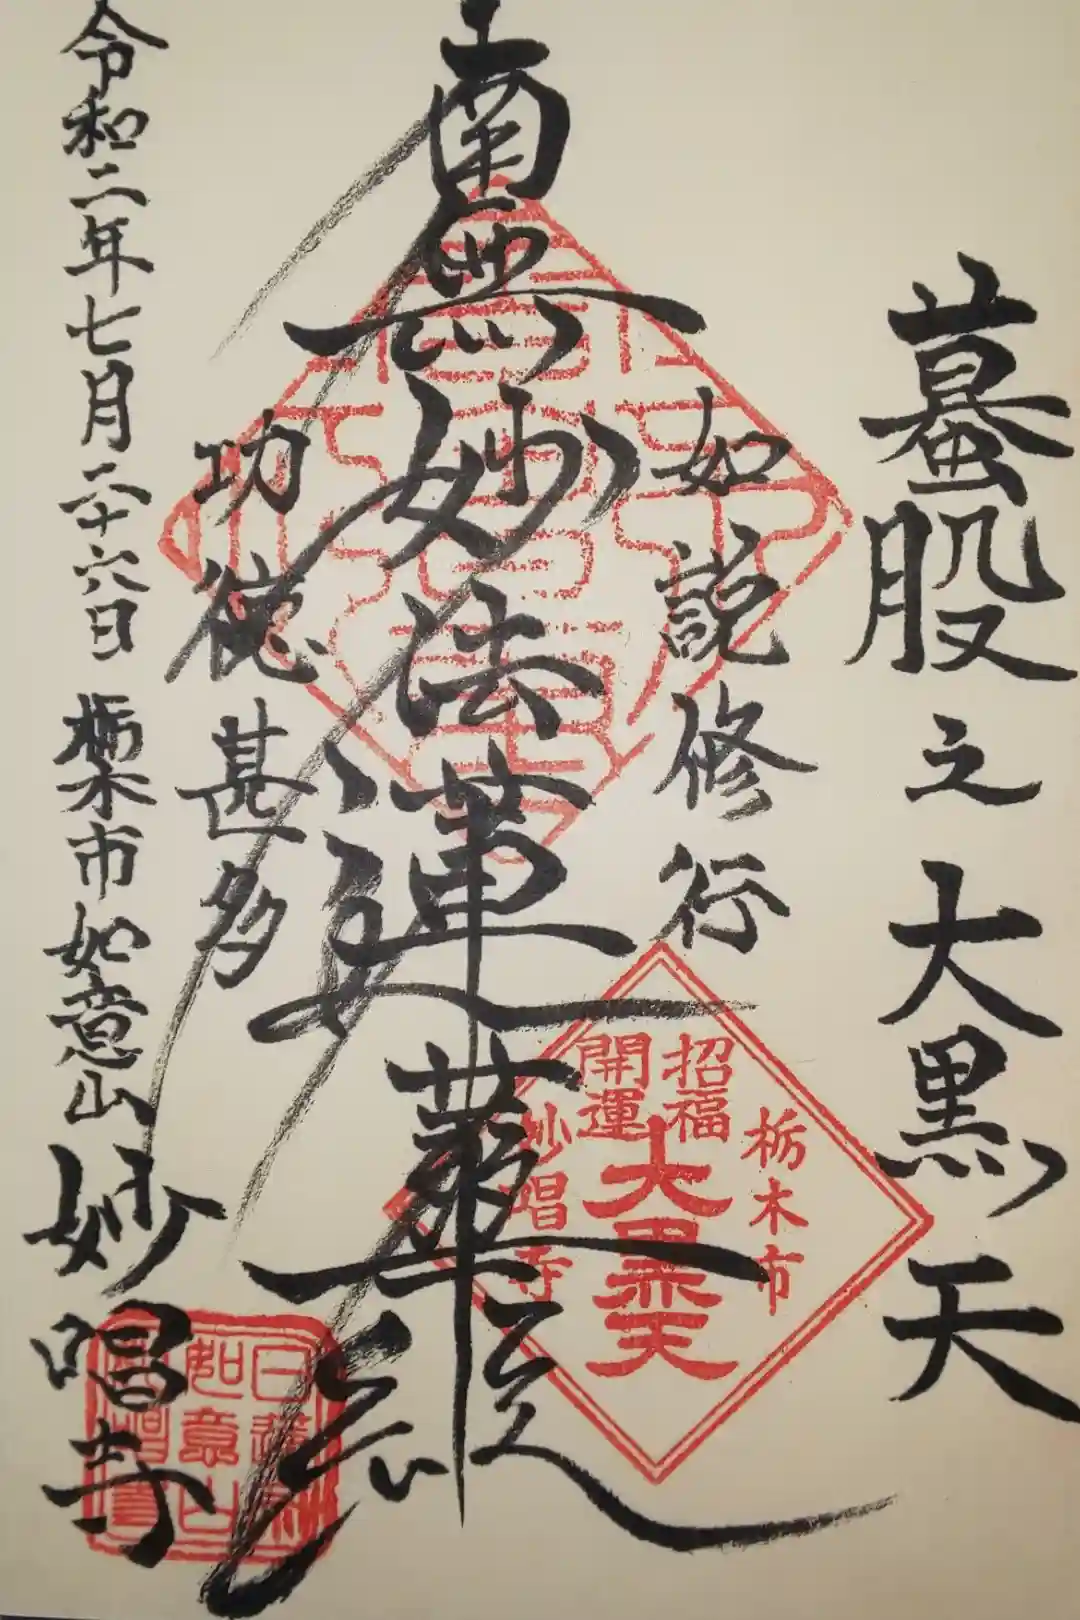 蟇股之大黒天
如説修行
南無妙法蓮華経
功徳甚多
令和二年七月二十六日 栃木市如意山
妙唱寺
栃木市
招福
開運
大黒天
妙唱寺
日蓮宗
如意山
妙唱寺